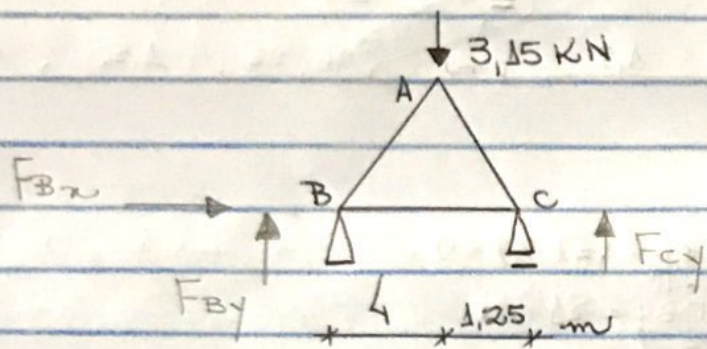 3,15 KN
A
F_Bx
B
C
F_By
F_Cy
4
1,25 m